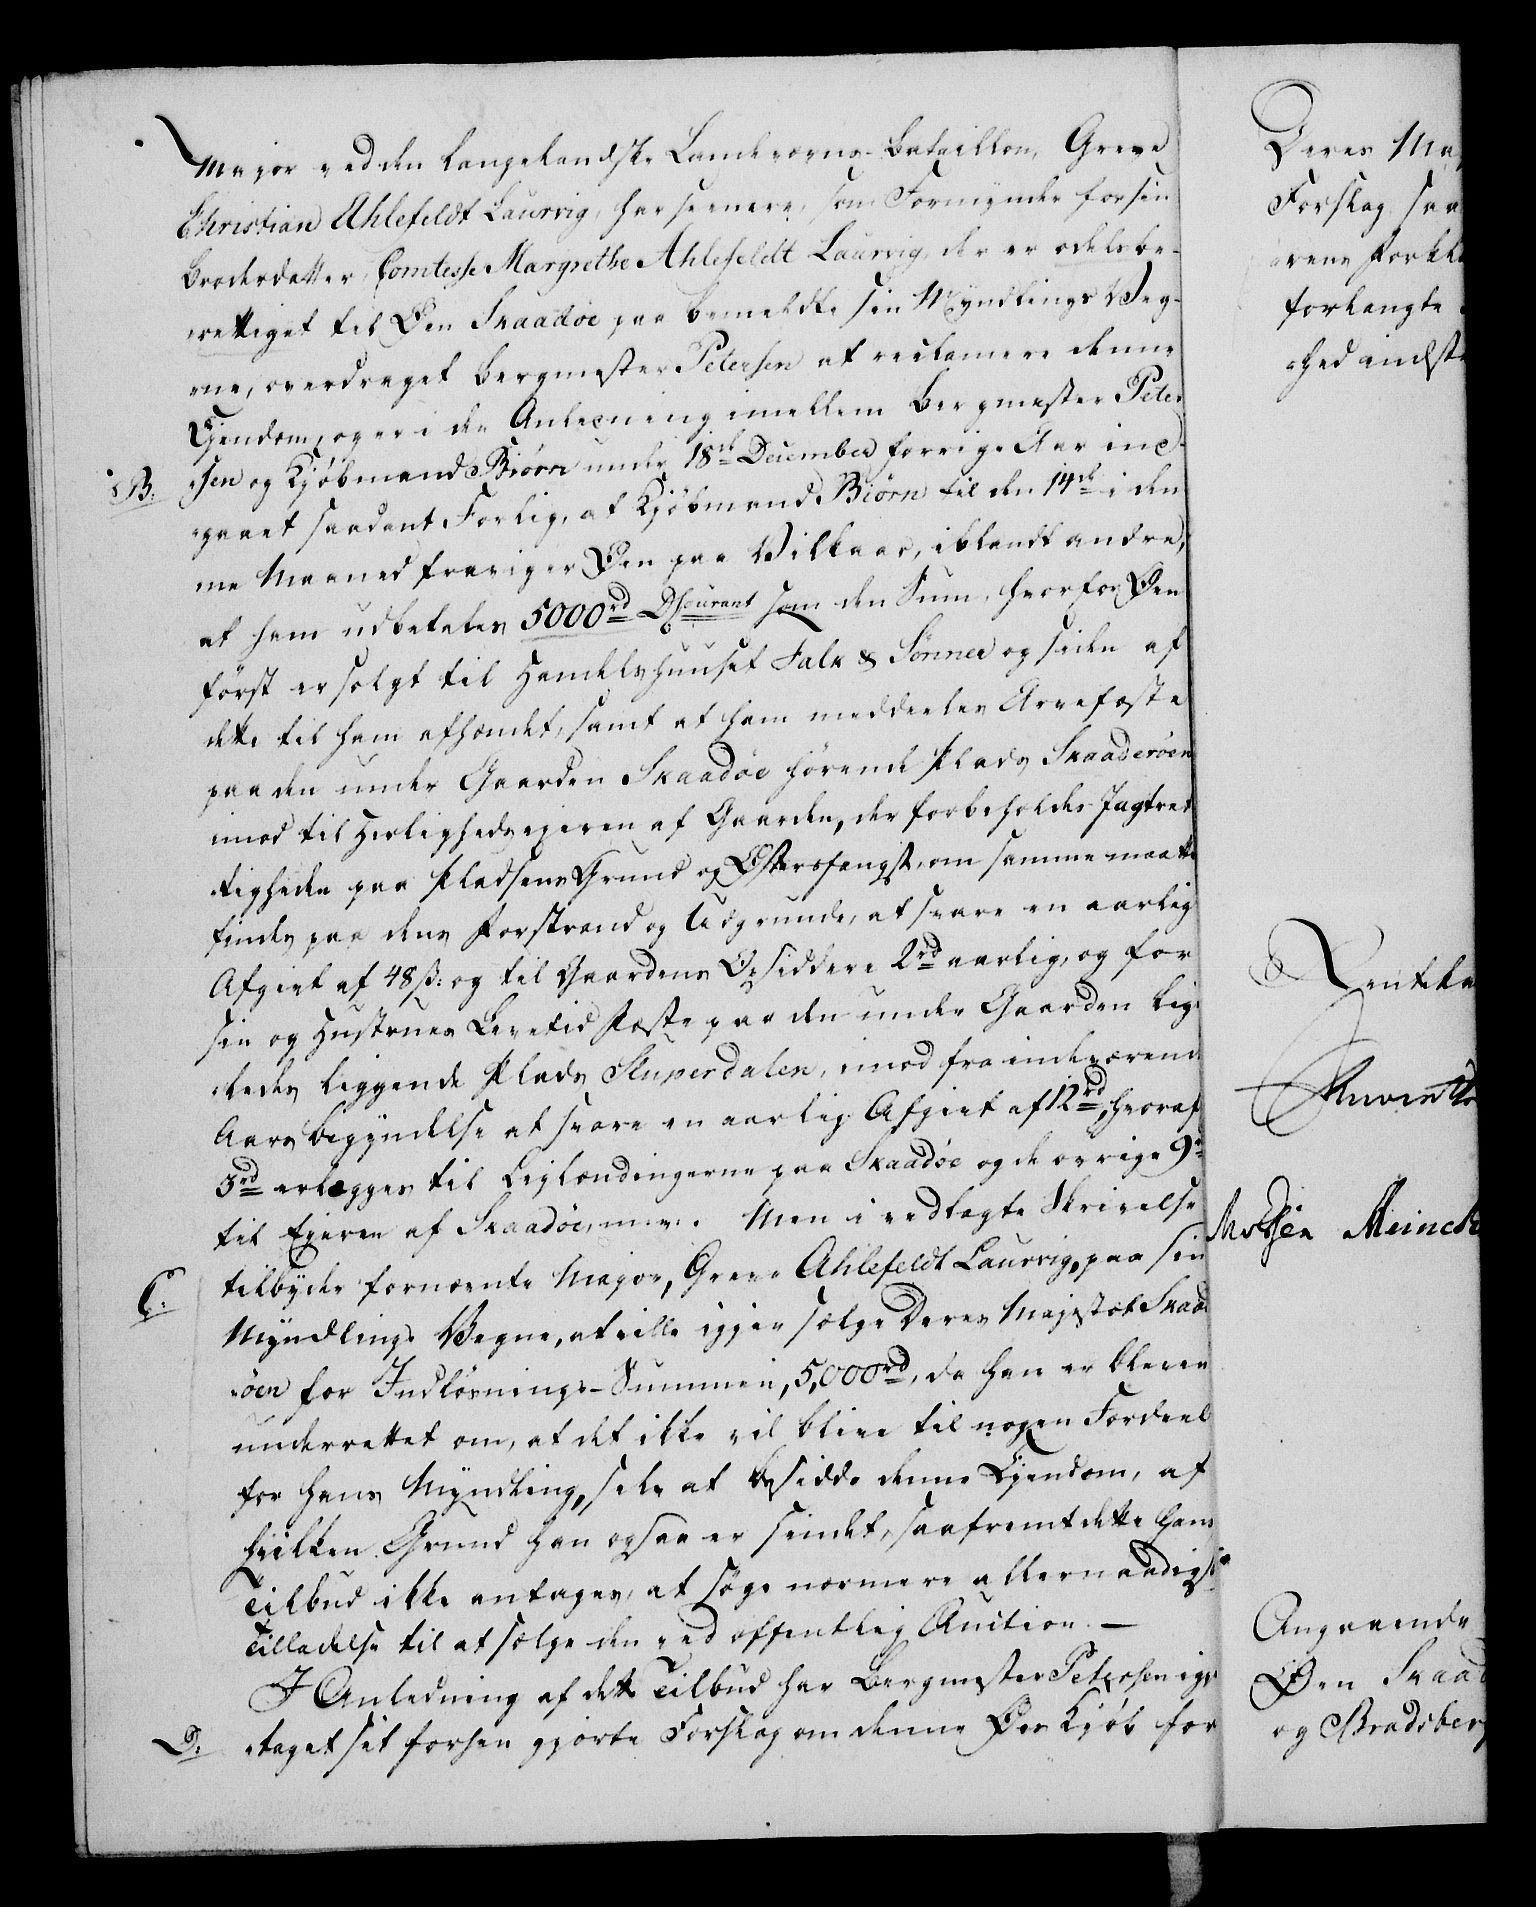 Major ved den Langelandske Landeværns-Bataillon, Greve
Christian Ahlefeldt Laurvig, har seenere, som Formynder for sin
Broderdatter, Comtesse Margrethe Ahlefeldt Laurvig, der er odelsbe-
rettiget til Øen Skaadøe paa bemeldte sin Myndlings Veg-
ne, overdraget Bergmester Petersen at reclamere denne
Ejendom, og er i den Anledning imellem Bergmester Peter
B: sen og Kjöbmand Biörn under 18de December forrige Aar ind-
gaaet saadant Forlig, at Kjöbmand Biörn til den 14de i den
ne Maaned fraviger Øen paa Vilkaar, iblandt andre,
at ham udbetales 5000rd DCourant som den Sum, hvorfor Øen
först er solgt til Handelshuuset Falk & Sönner og siden af
dette til ham afhændet, samt at ham meddeeles Arvefæste
paa den under Gaarden Skaadöe hörende Plads Skaaderöen
imod til Herlighedsejeren af Gaarden, der forbeholdes Jagtret
tigheden paa Pladsens Grund og Østersfangst, om samme maatte
findes paa dens Forstrand og Udgrunde, at svare en aarlig
Afgivt af 48 ß: og til Gaardens Besiddere 2rd aarlig, og for
sin og Hustrues Levetid Fæste paa den under Gaarden lige
ledes liggende Plads Stuperdalen, imod fra indeværende
Aars Begyndelse at svare en aarlig Afgivt af 12rd, hvoraf
3rd erlægges til Leilændingerne paa Skaadöe og de övrige 9rd
til Ejeren af Skaadöe, m. v. Men i vedlagte Skrivelse
C: tilbyder fornævnte Major, Greve Ahlefeldt Laurvig, paa sin
Myndlings Vegne, at ville igjen sælge Deres Majestæt Skaad
öen for Indlösnings-Summen, 5,000rd, da han er bleven
underrettet om, at det ikke vil blive til nogen Fordeel
for hans Myndling, selv at besidde denne Ejendom, af
hvilken Grund han ogsaa er sindet, saafremt dette hans
Tilbud ikke antages, at söge nærmere allernaadigst
Tilladelse til at sælge den ved offentlig Auction. —
I Anledning af dette Tilbud har Bergmester Petersen igjen
D: taget sit forhen gjorte Forslag om denne Øes Kjöb for
Deres Ma
Forslag saa
forlangte
hed indst
Rentekam
Meinck
Angaaende
Øen Skaad
og Bradsberg